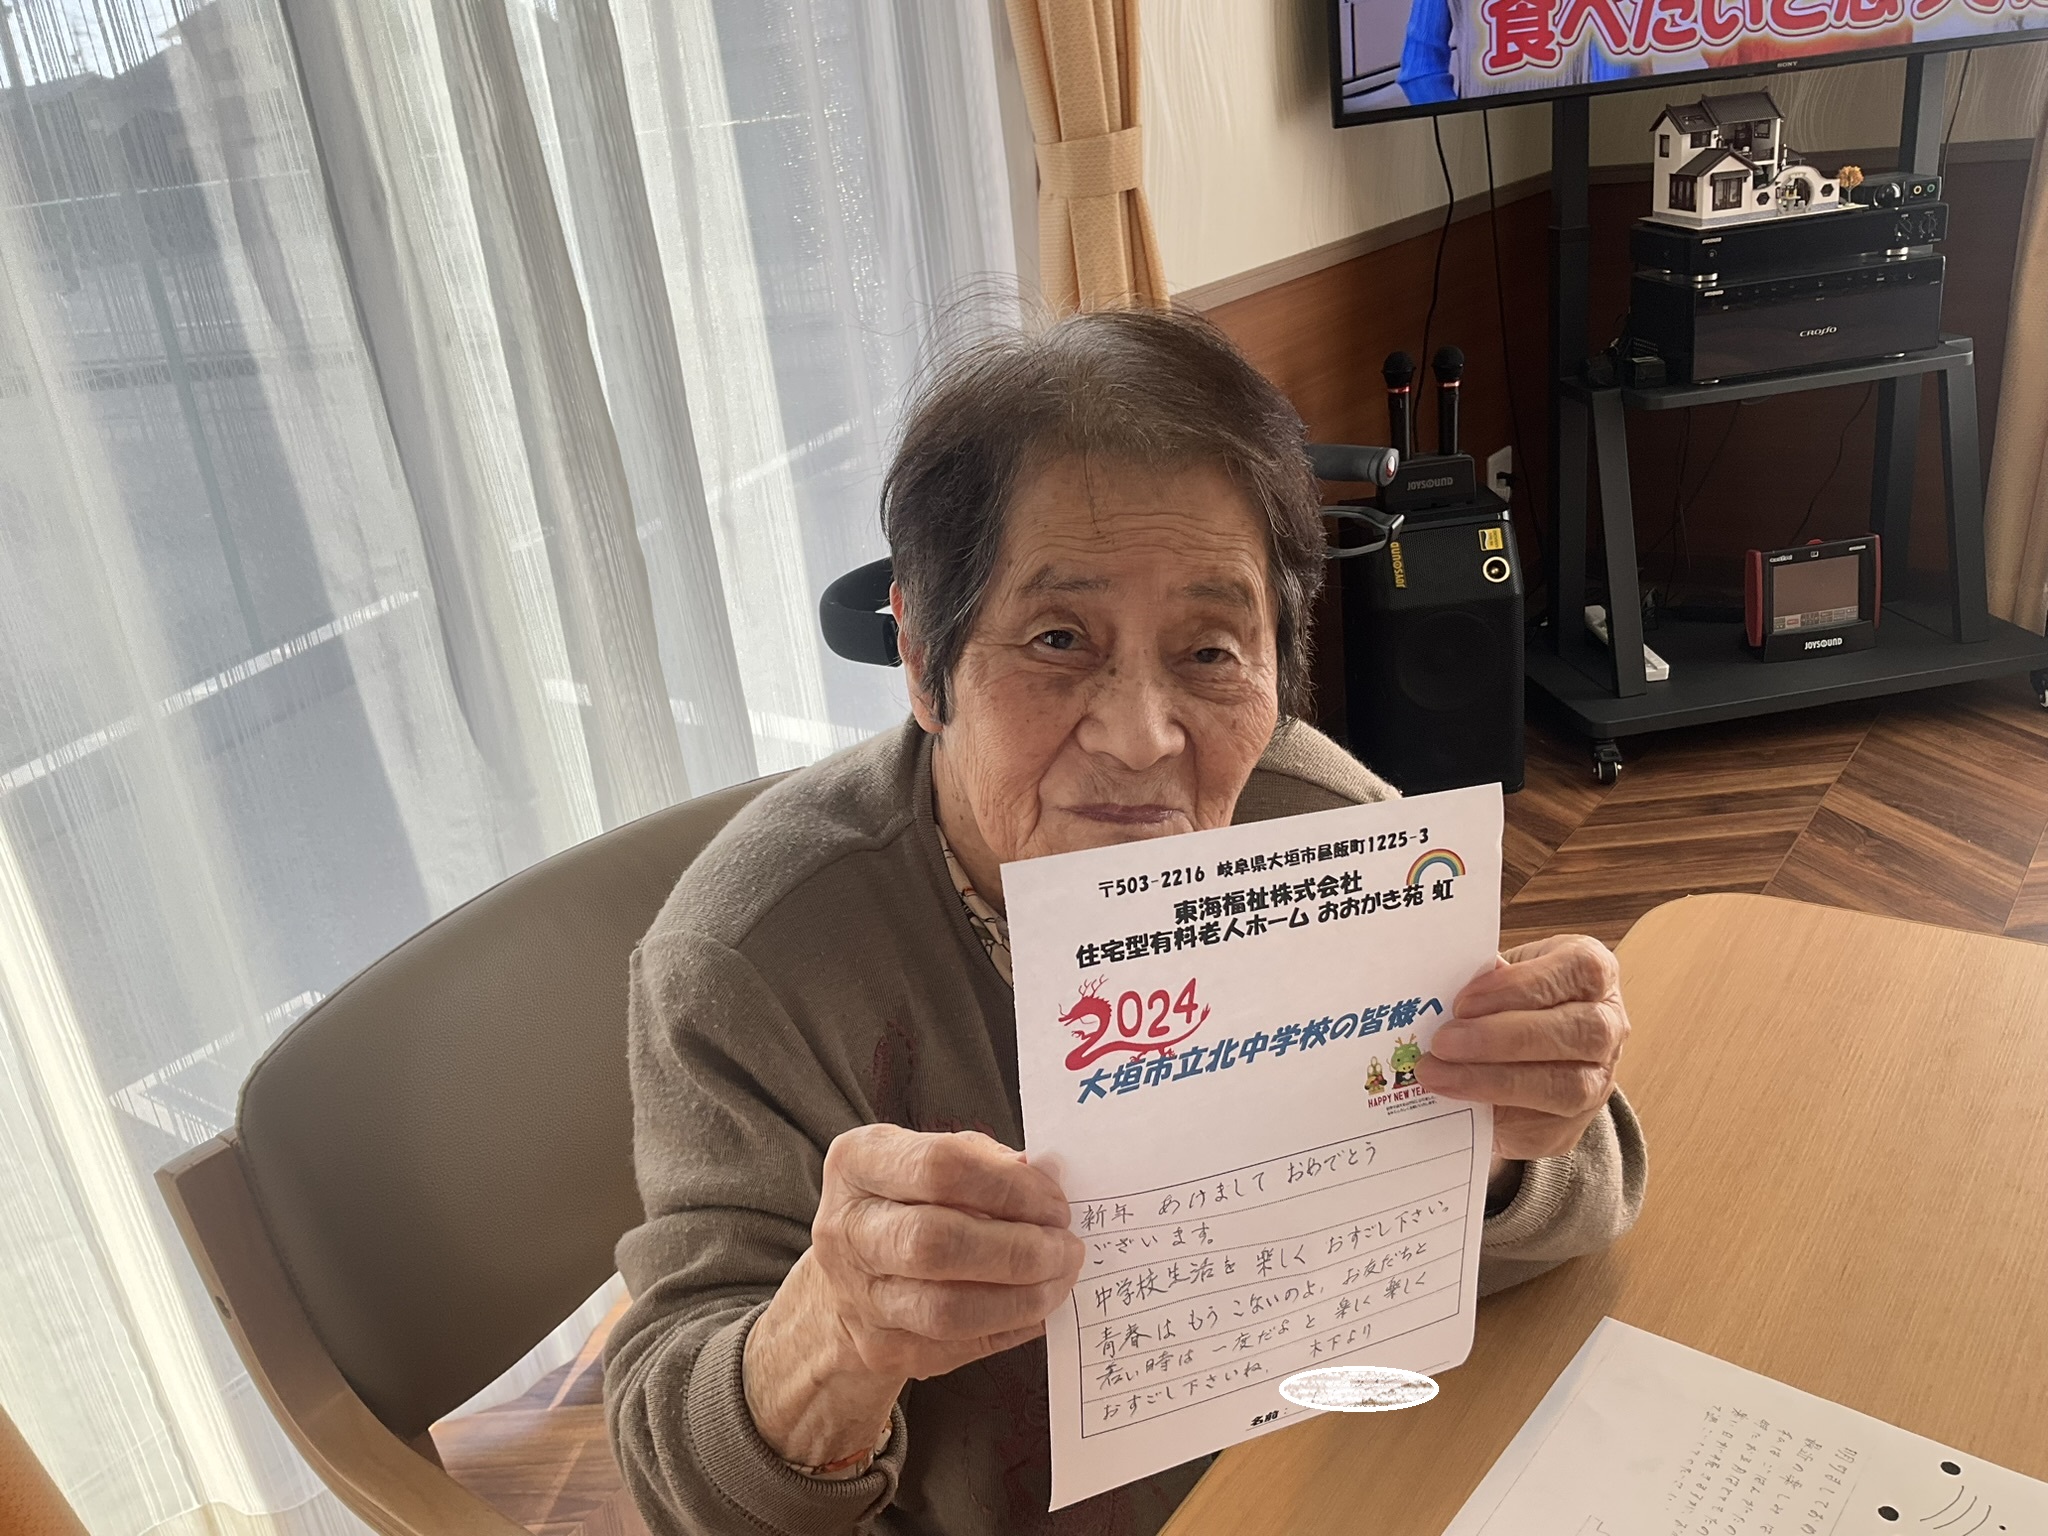 食べたいと思った
SONY
CROSSO
JOYSOUND
JOYSOUND
JOYSOUND
〒503-2216 岐阜県大垣市昼飯町1225-3
東海福祉株式会社
住宅型有料老人ホーム おおがき苑 虹
2024
大垣市立北中学校の皆様へ
HAPPY NEW YEAR
新年 あけまして おめでとう
ございます。
中学校生活を 楽しく おすごし下さい。
青春は もう こないのよ、お友だちと
若い時は 一度だよ と 楽しく 楽しく
おすごし下さいね、 木下より
名前: